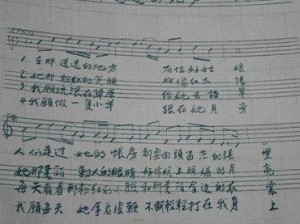 1 在那遥远的地方 有位好姑 娘
2 她那粉红的笑脸 好像红太 阳
3 我愿流浪在草原 给她去放 羊
4 我愿做一只小羊 跟在她身 旁
人们走过 她的帐房都要回頭留恋的张 望
她那美丽 動人的眼睛 好像晚上明媚的月 亮
每天看着那粉红的小脸和那美丽金边的衣 裳
我愿每天 她拿着皮鞭 不断轻轻打在我身 上